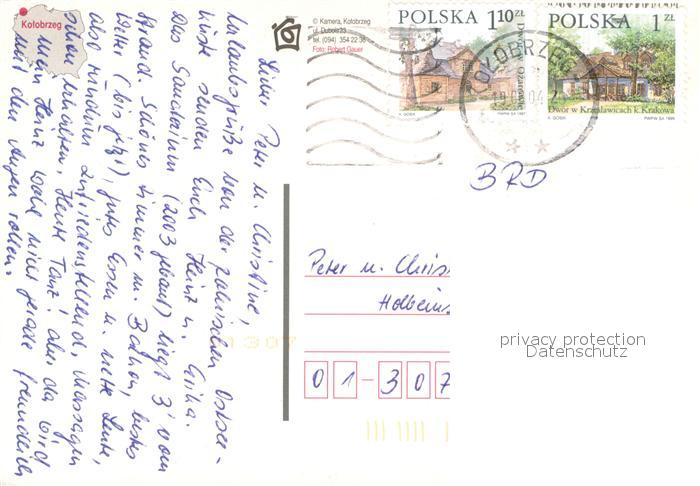 Kołobrzeg
© Kamera, Kołobrzeg
ul. Dubois 23
tel. (094) 354 22 38
Foto: Robert Gauer
POLSKA 1 10 ZŁ
Dwór w Ożarowie
A. GOSIK PWPW SA 1997
POLSKA 1 ZŁ
Dwór w Krzesławicach k. Krakowa
A. GOSIK PWPW SA 1999
KOŁOBRZEG
04
BRD
Liebe Peter u. Christine,
Urlaubsgrüße von der polnischen Ostsee-
küste senden Euch Heinz u. Erika.
Das Sanatorium (2003 gebaut) liegt 3' vom
Strand. Schönes Zimmer m. Balkon, bestes
Wetter (bis jetzt), gutes Essen u. nette Leute,
also rundum zufriedenstellend. Massagen
schon erhalten, Heute Tanz! aber da wird
mein Heinz wohl nicht gerade freundlich
mit den Augen rollen.
Peter u. Chris
Holbeins
01-307
01307
privacy protection
Datenschutz